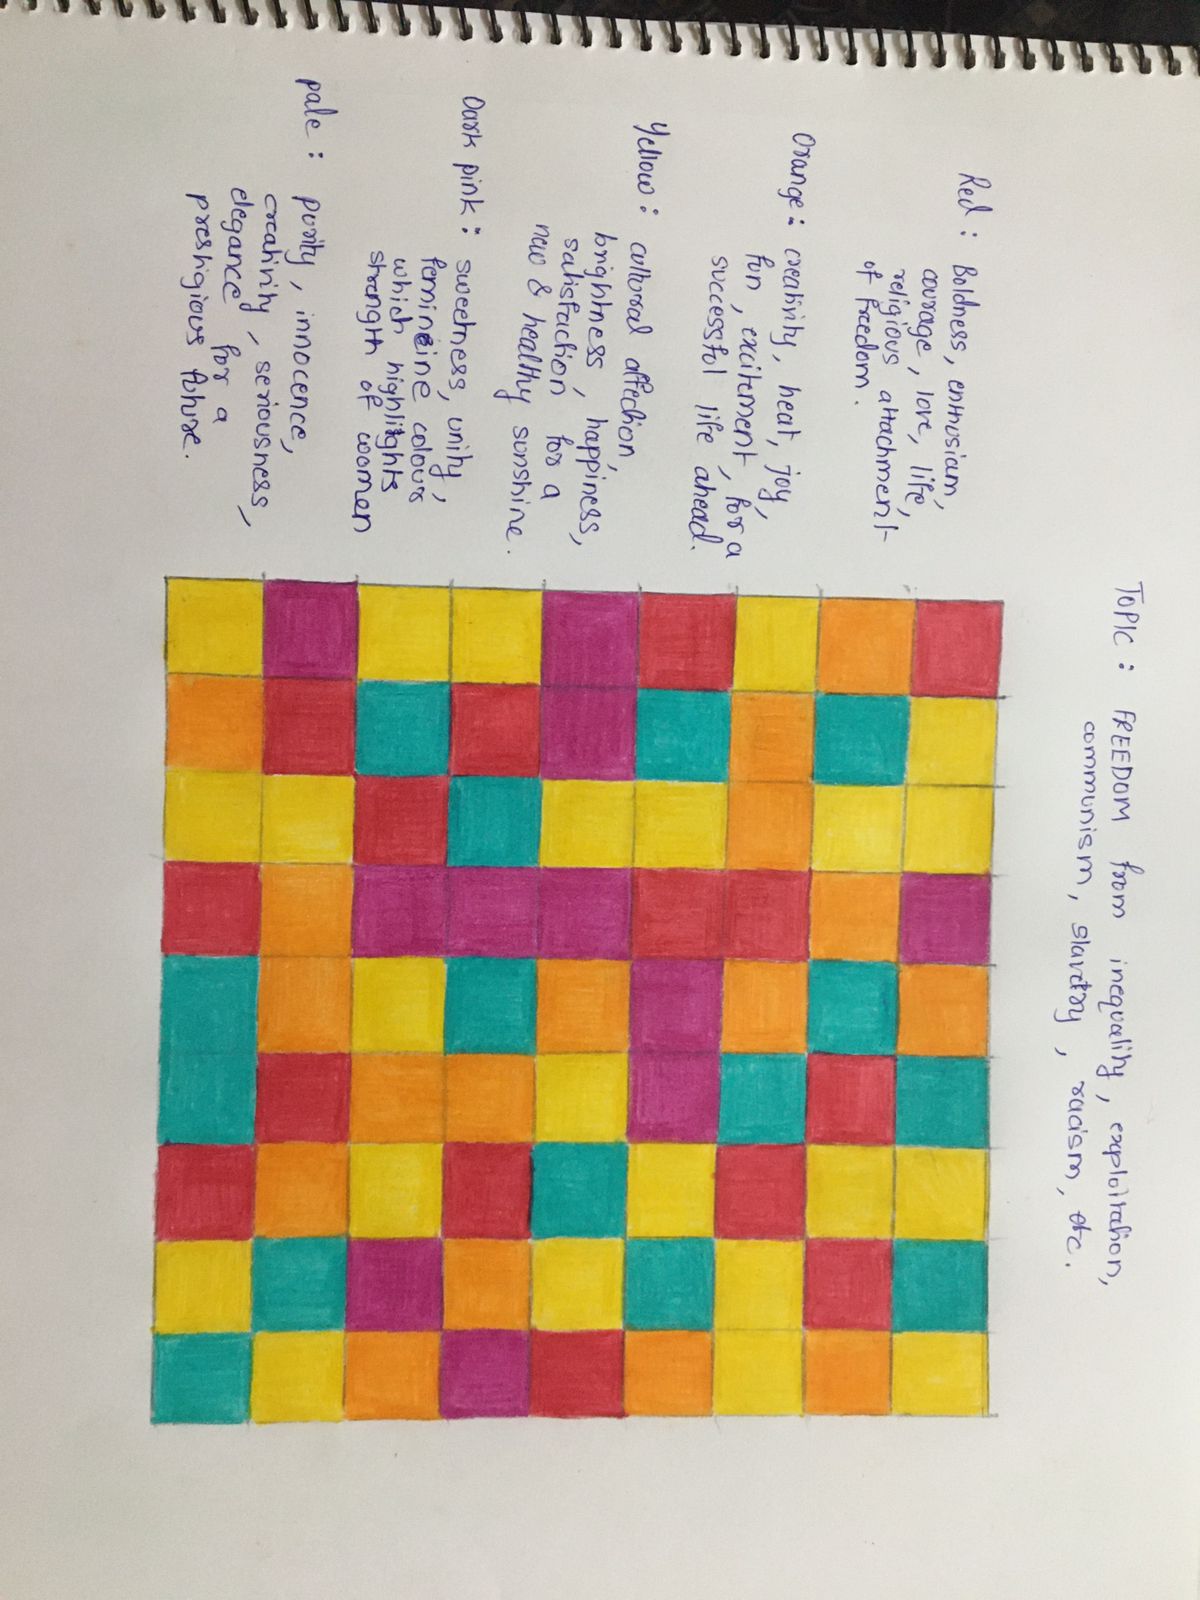 TOPIC : FREEDOM from inequality, exploitation,
communism, slavery, racism, etc.
Red : Boldness, enthusiasm,
courage, love, life,
religious attachment
of freedom.
Orange : creativity, heat, joy,
fun, excitement, for a
successful life ahead.
Yellow : cultural affection,
brightness, happiness,
satisfaction for a
new & healthy sunshine.
Dark pink : sweetness, unity,
feminine colours
which highlights
strength of women
pale : purity, innocence,
creativity, seriousness,
elegance for a
prestigious future.